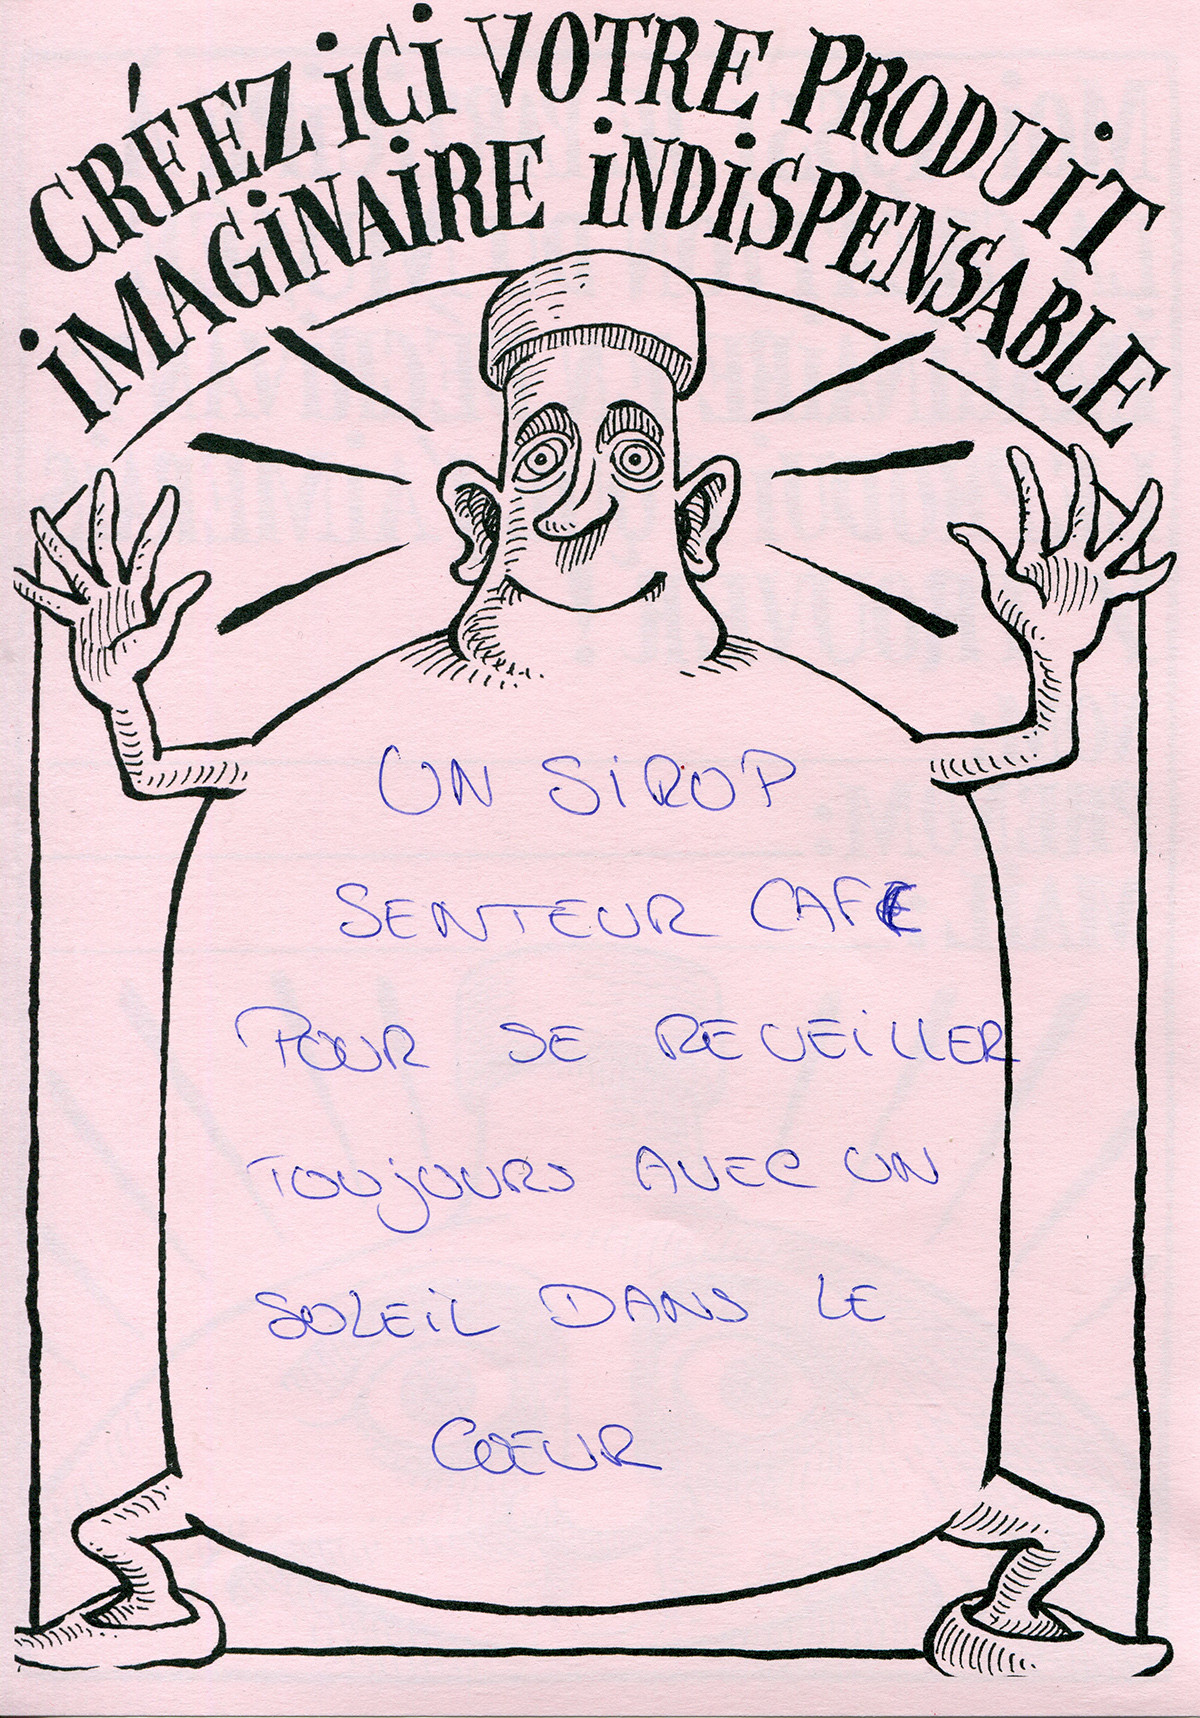 CRÉEZ iCi VOTRE PRODUiT
iMAGiNAiRE iNDiSPENSABLE
UN SiROP
SENTEUR CAFE
POUR SE REVEiLLER
TOUjOURS AVEC UN
SOLEiL DANS LE
COEUR